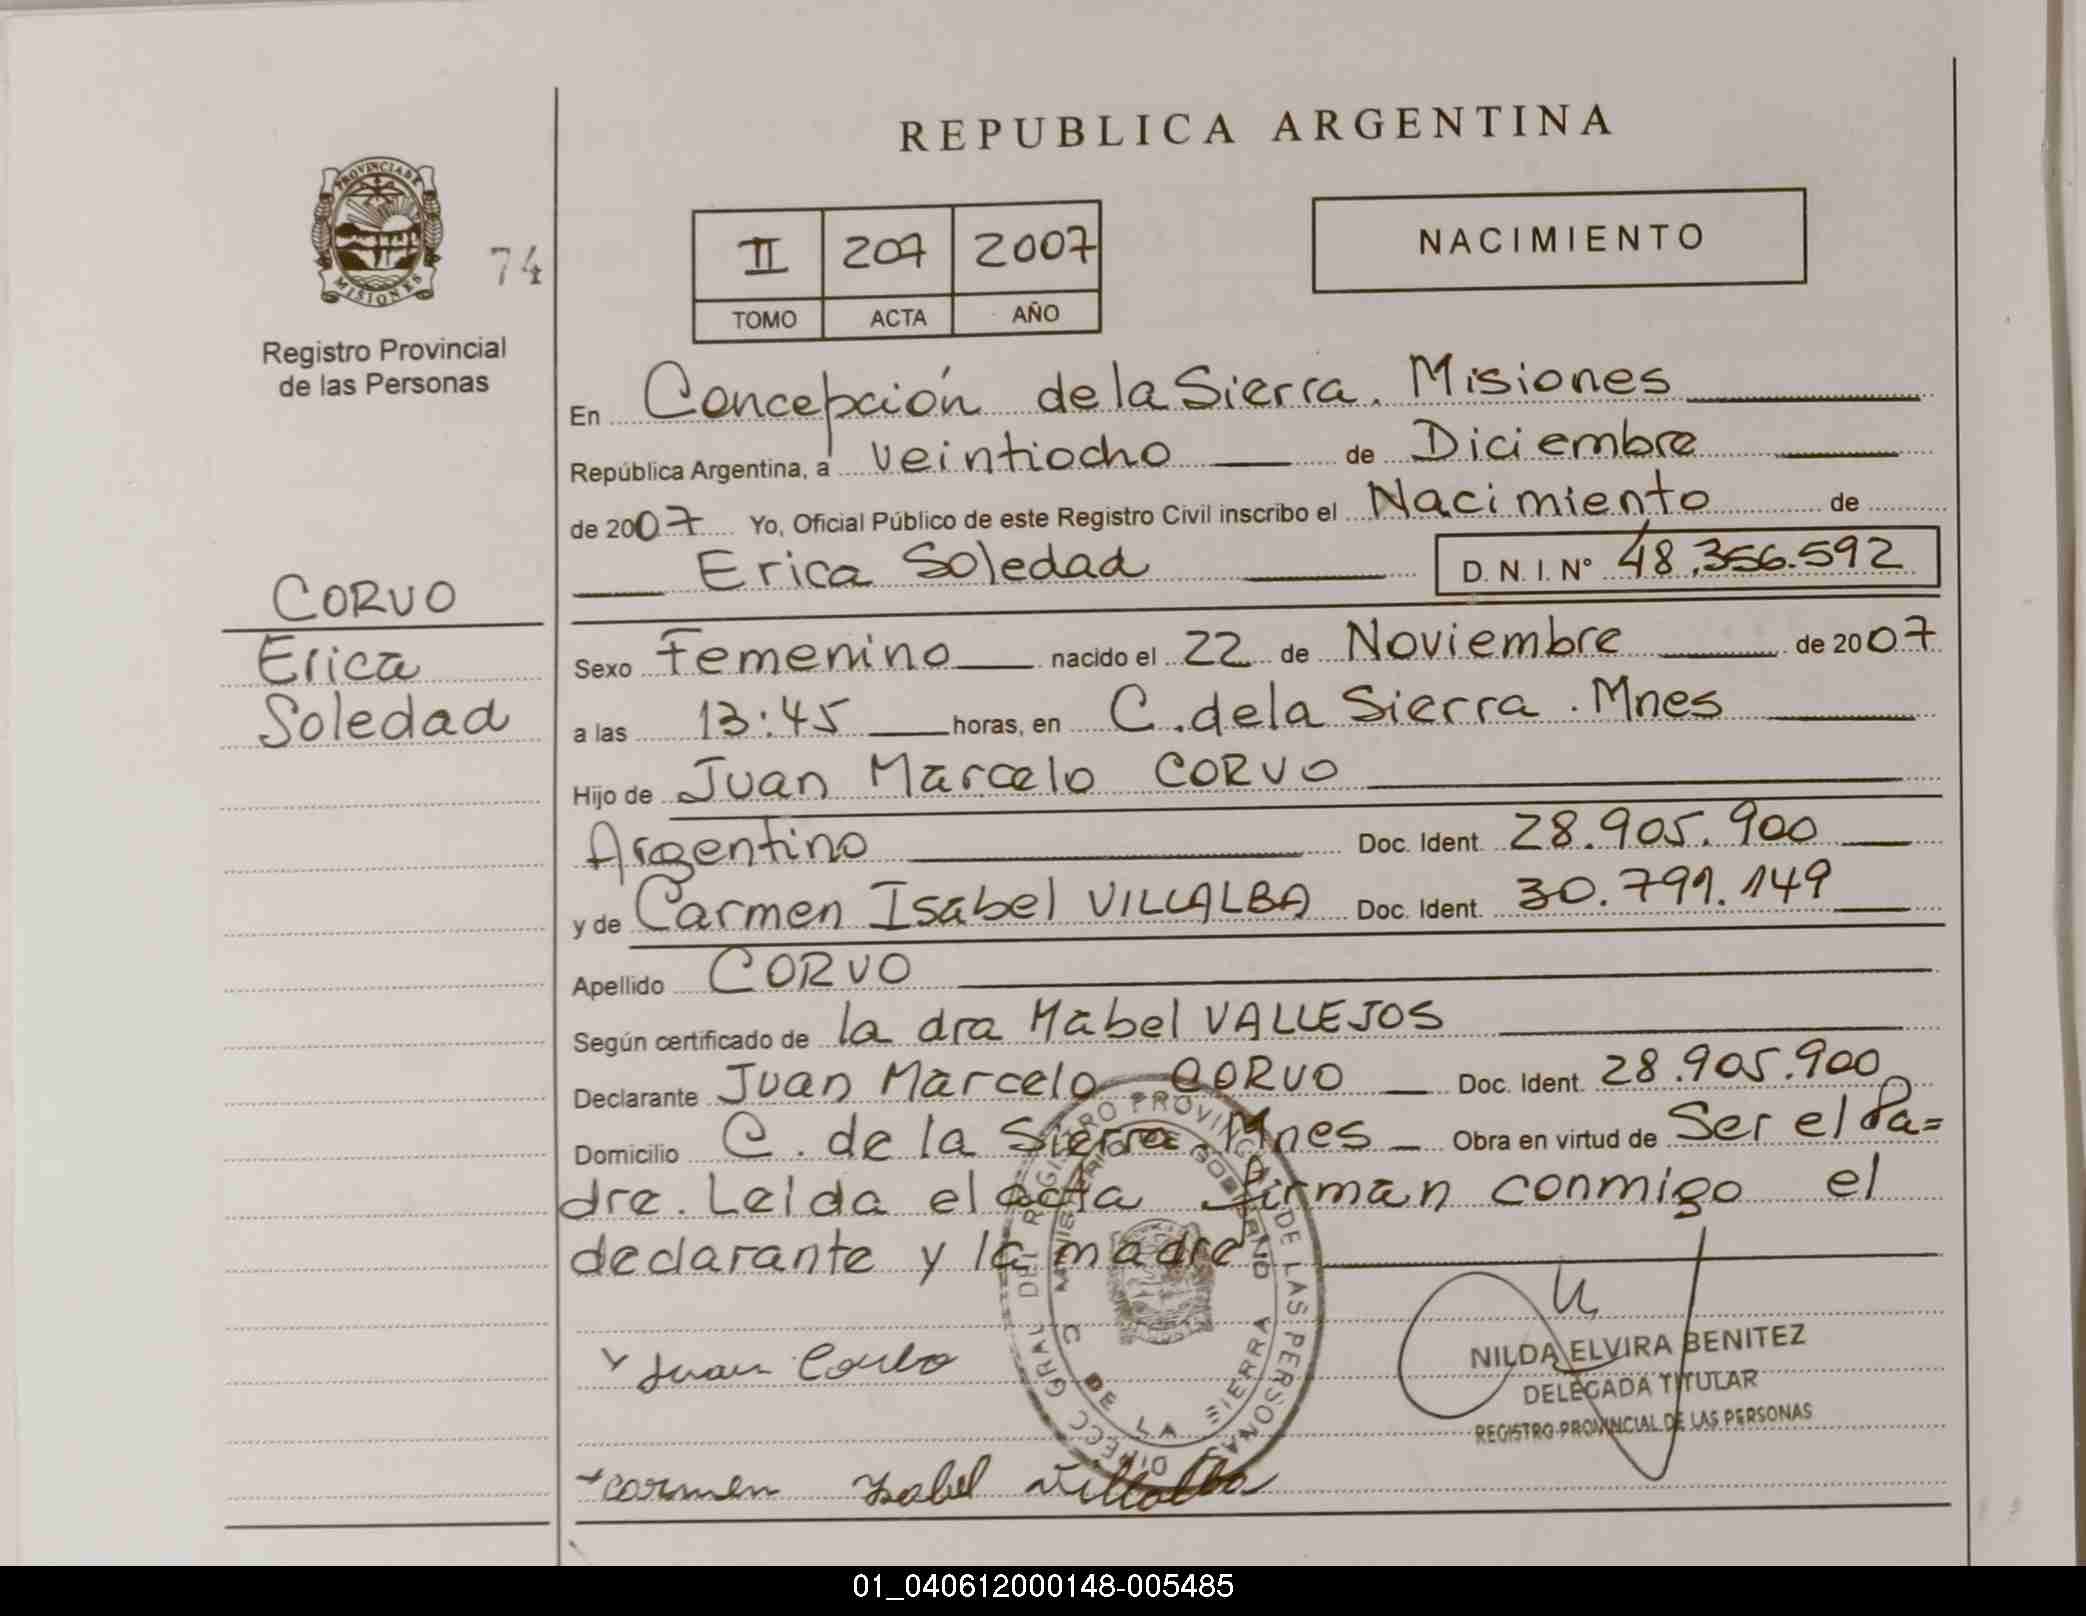 REPUBLICA ARGENTINA
PROVINCIA DE MISIONES
74
Registro Provincial
de las Personas
II 207 2007
TOMO ACTA AÑO
NACIMIENTO
CORVO
Erica
Soledad
En Concepción de la Sierra. Misiones
República Argentina, a veintiocho de Diciembre
de 2007 Yo, Oficial Público de este Registro Civil inscribo el Nacimiento de
Erica Soledad D.N.I. Nº 48.356.592
Sexo Femenino nacido el 22 de Noviembre de 2007
a las 13:45 horas, en C. de la Sierra. Mnes
Hijo de Juan Marcelo CORVO
Argentino Doc. Ident. 28.905.900
y de Carmen Isabel VILLALBA Doc. Ident. 30.791.149
Apellido CORVO
Según certificado de la dra Mabel VALLEJOS
Declarante Juan Marcelo CORVO Doc. Ident. 28.905.900
Domicilio C. de la Sierra. Mnes Obra en virtud de Ser el Pa=
dre. Leida el acta firman conmigo el
declarante y la madre
DIRECC GRAL DEL REGISTRO PROVINCIAL DE LAS PERSONAS
C DE LA SIERRA
Juan Corvo
NILDA ELVIRA BENITEZ
DELEGADA TITULAR
REGISTRO PROVINCIAL DE LAS PERSONAS
Carmen Isabel Villalba
01_040612000148-005485